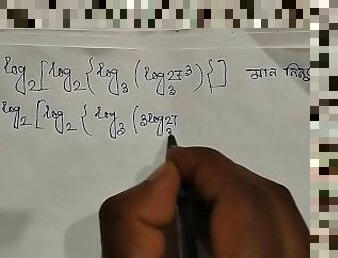 log₂[log₂{log₃(log₃27³)}] मान निर्ण
log₂[log₂{log₃(3log₃27